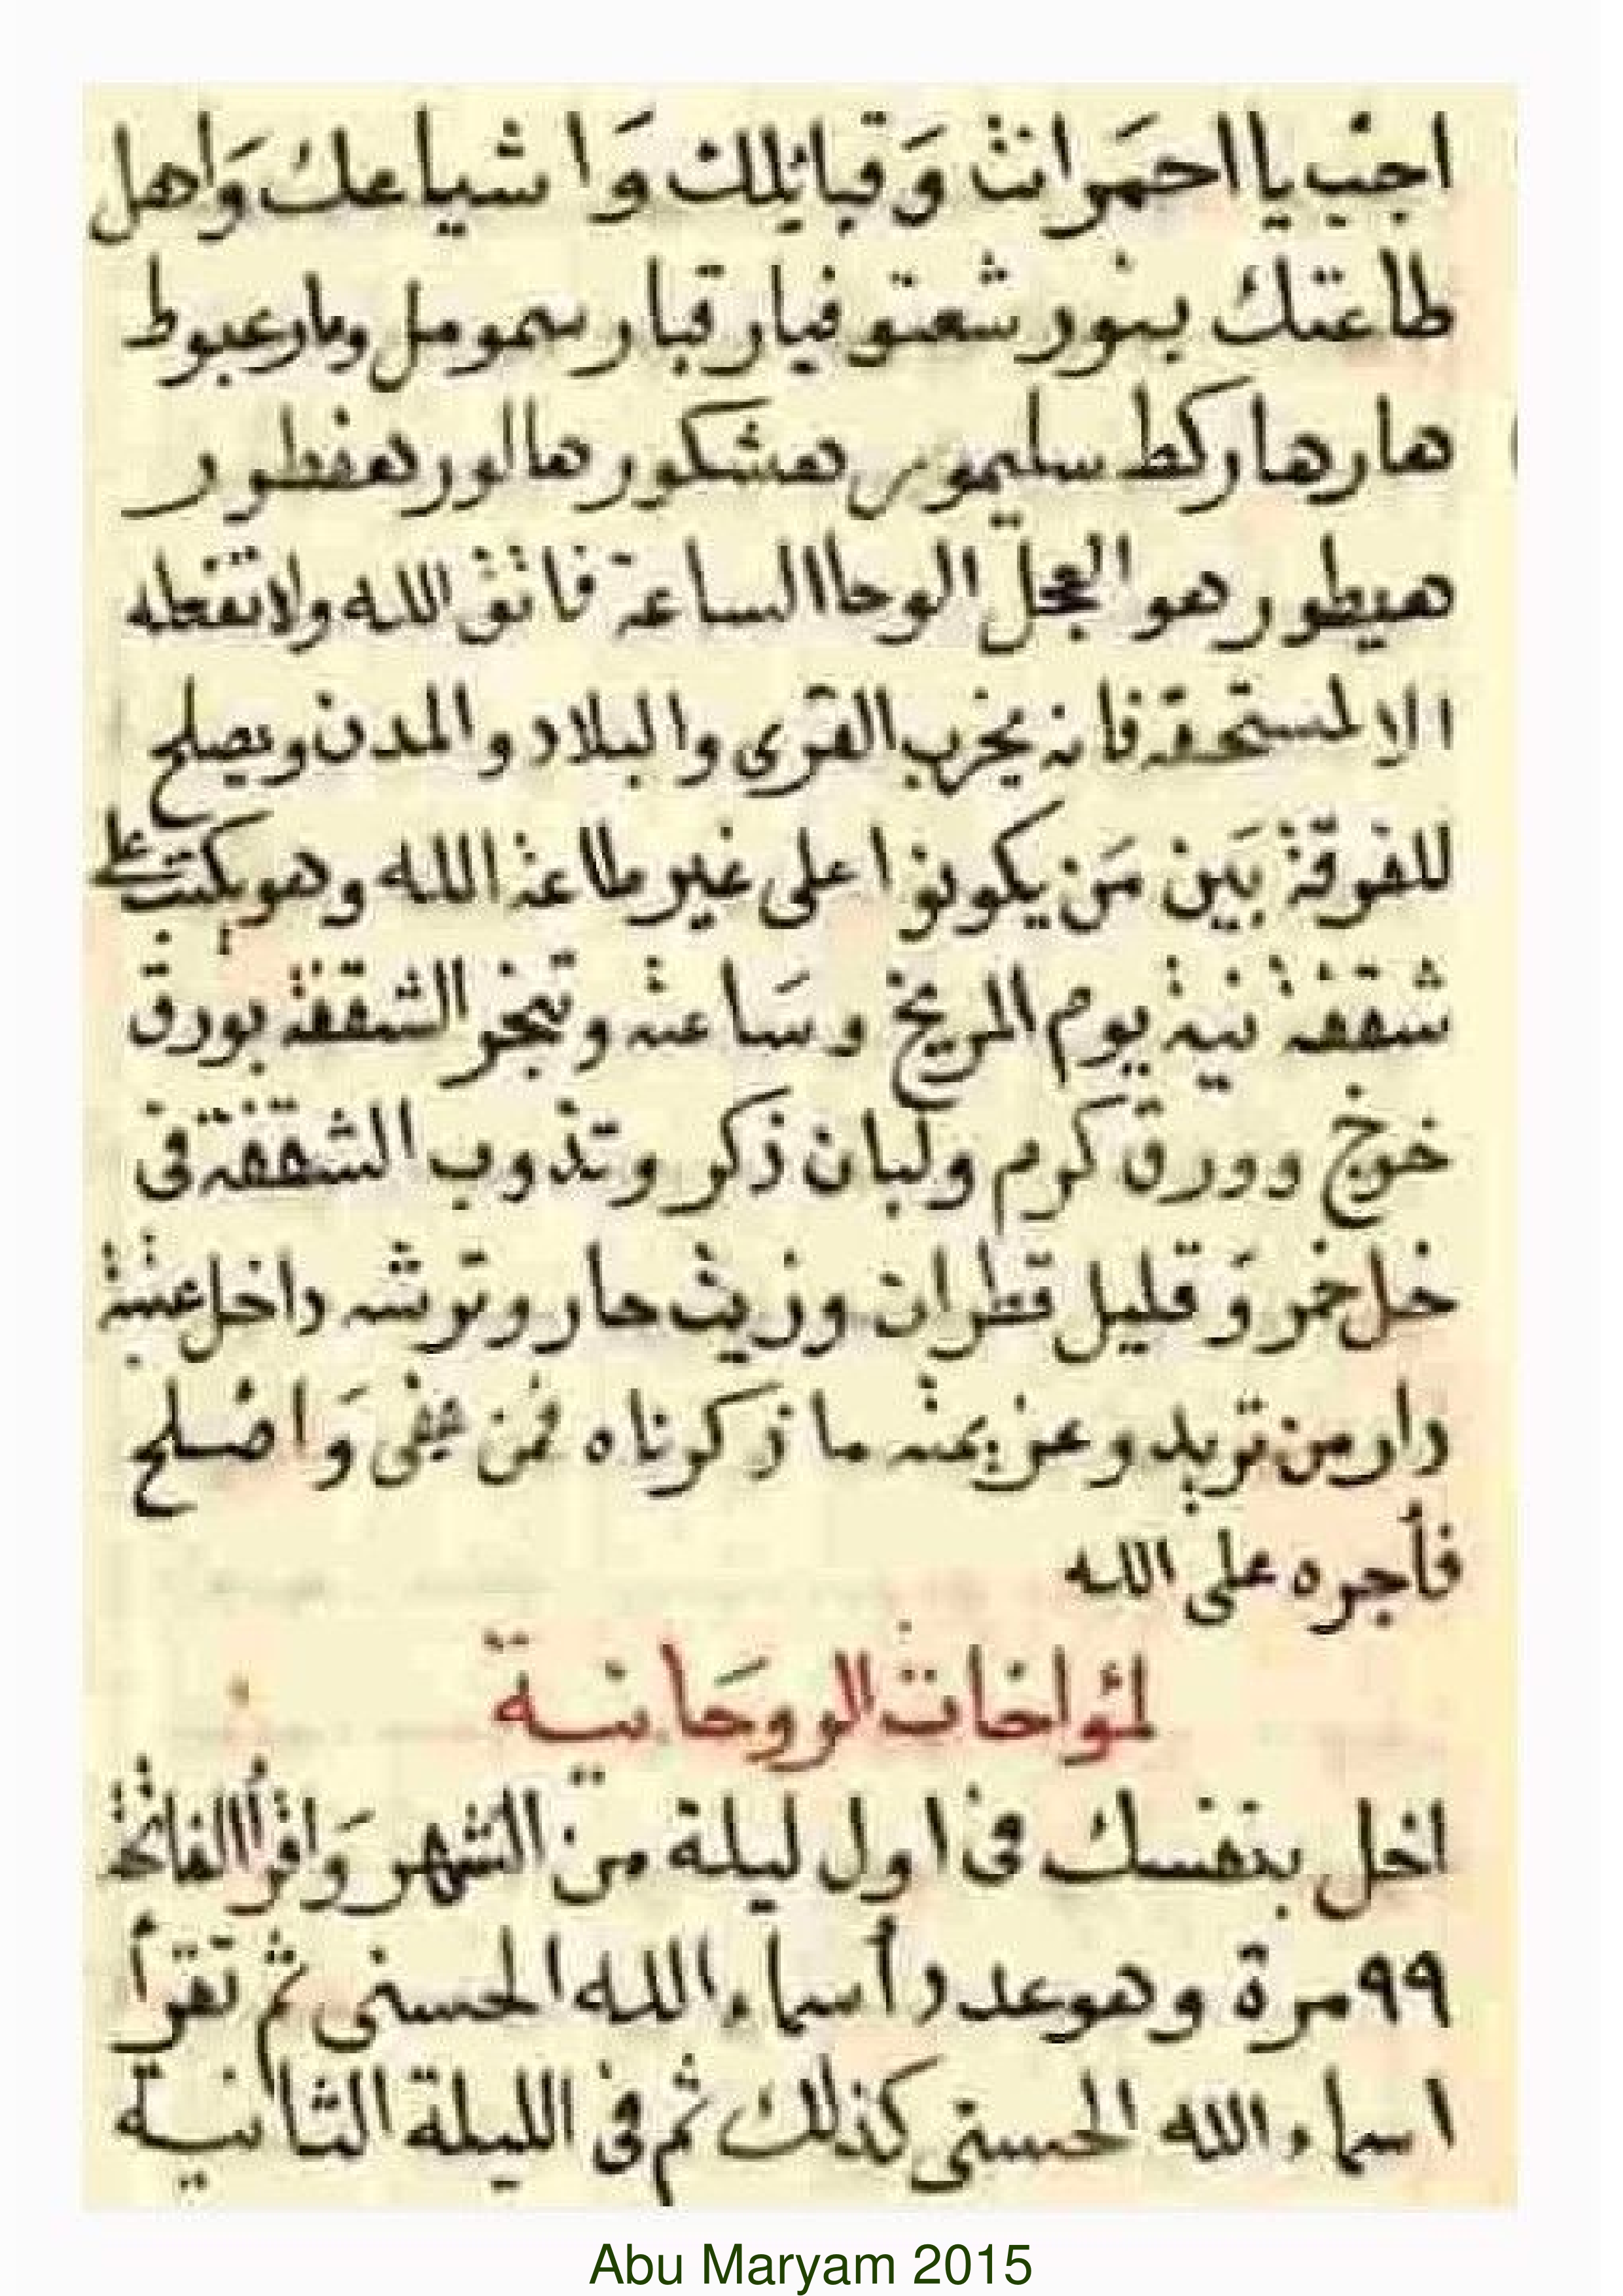 اجب يا احمر انت وَقبائلك وَاشياعك وَاهل
طاعتك بنور شعتو فيار قبار سمومل ومار عبوط
هارهاركط سليموں همشكور هالور همفطور
هيطور هو العجل الوحا الساعة فاتق الله ولا تفعله
الا لمستحقه فانه يخرب القرى والبلاد والمدن ويصلح
للفرقة بَين مَن يكونوا على غير طاعة الله وهو يكتب على
شقفة نية يوم المريخ وسَاعته وتبخر الشقفة بورق
خوخ وورق كرم ولبان ذكر وتذوب الشقفة فى
خل خمر وَقليل قطران وزيت حار وترشه داخل عتبة
دار من تريد وعزيمته ما ذكرناه فمن عفى وَاصلح
فأجره على الله
لمؤاخات الروحَانية
اخل بنفسك فى اول ليلة من الشهر وَاقرأ الفاتحة
٩٩ مرة وهو عدد أسماء الله الحسنى ثم تقرأ
اسماء الله الحسنى كذلك ثم فى الليلة الثانية
Abu Maryam 2015